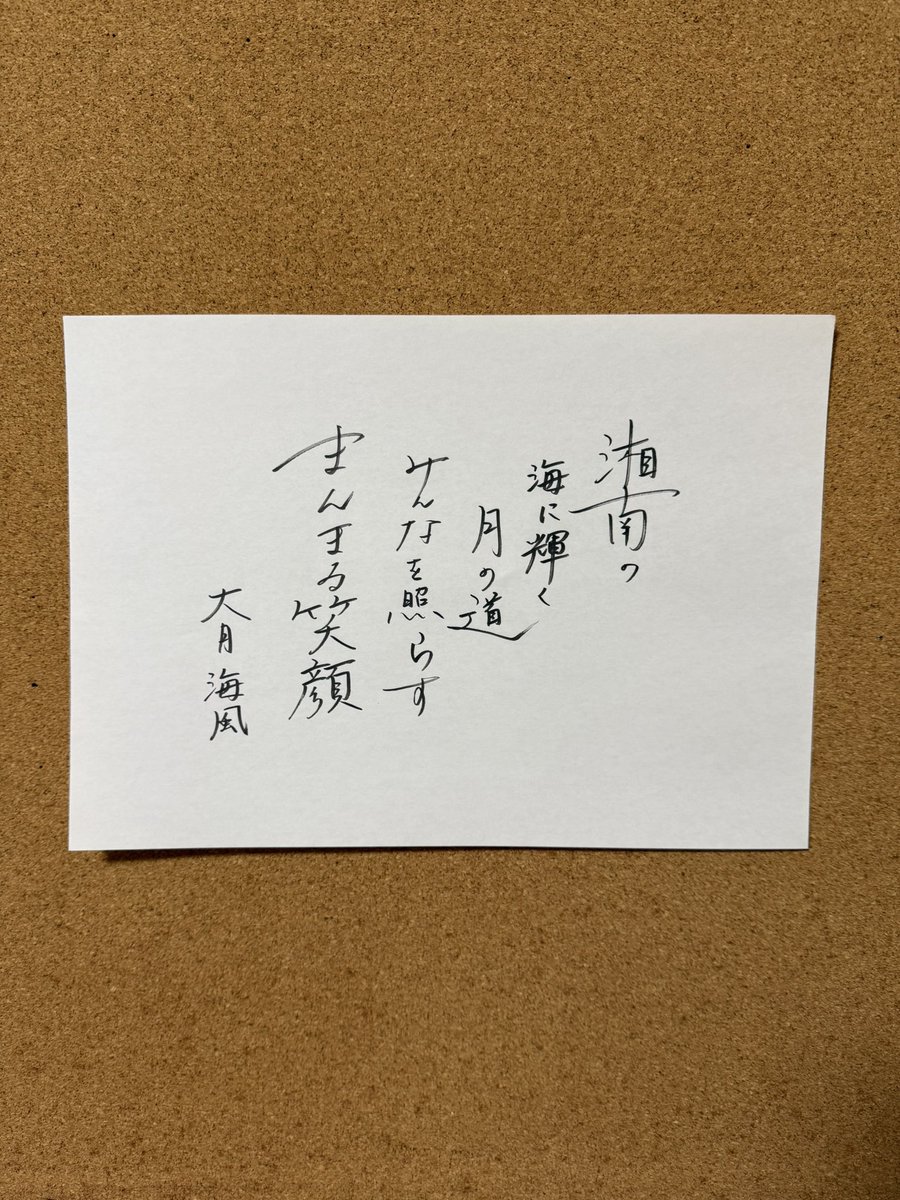 湘南の
海に輝く
月の道
みんなを照らす
まんまる笑顔
大月海風